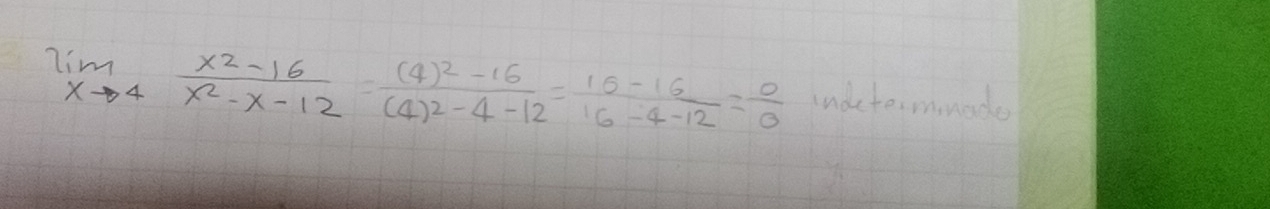 lim x→4 x²-16 / x²-x-12 = (4)2-16 / (4)2-4-12 = 16-16 / 16-4-12 = 0/0 indeterminado